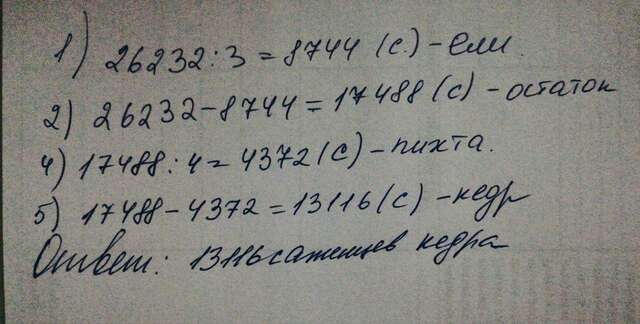 1) 26232:3=8744 (с.)-ели.
2) 26232-8744=17488(с)-остаток
4) 17488:4=4372(с)-пихта.
5) 17488-4372=13116(с)-кедр
Ответ: 13116саженцев кедра